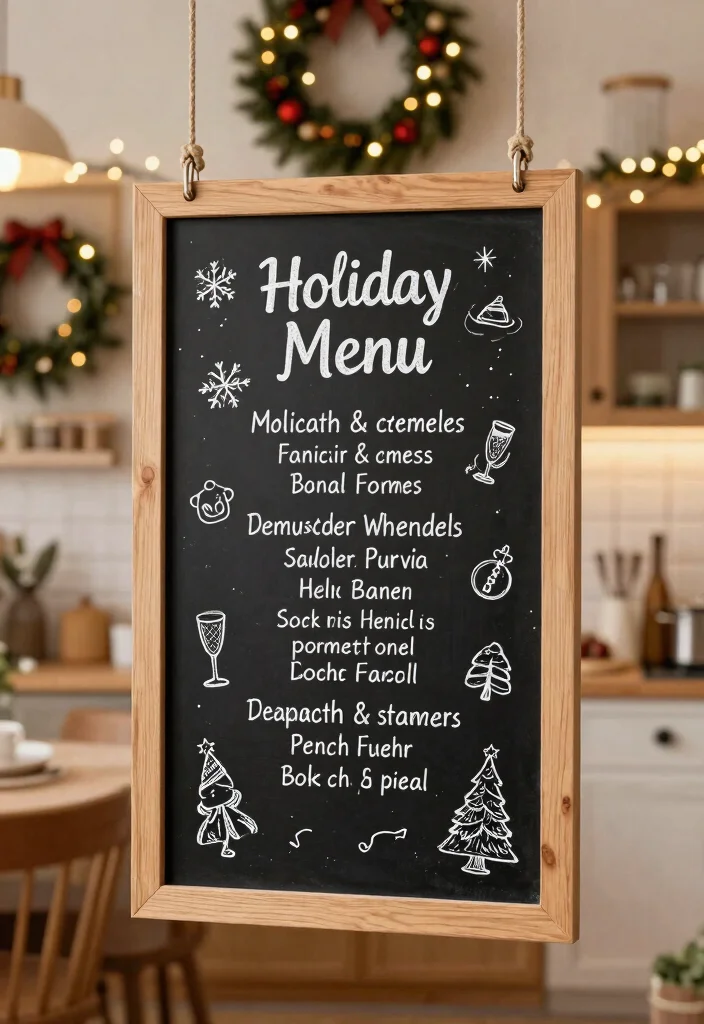 Holiday
Menu
Molicath & ctemeles
Fanicir & cmess
Bonal Fornes
Demuscder Whendels
Sauloler. Purvia
Helic Banen
Sock nis Henicl is
pormett onel
Eochc Facoll
Deapacth & stamers
Pench Fuehr
Bok ch. & pieal